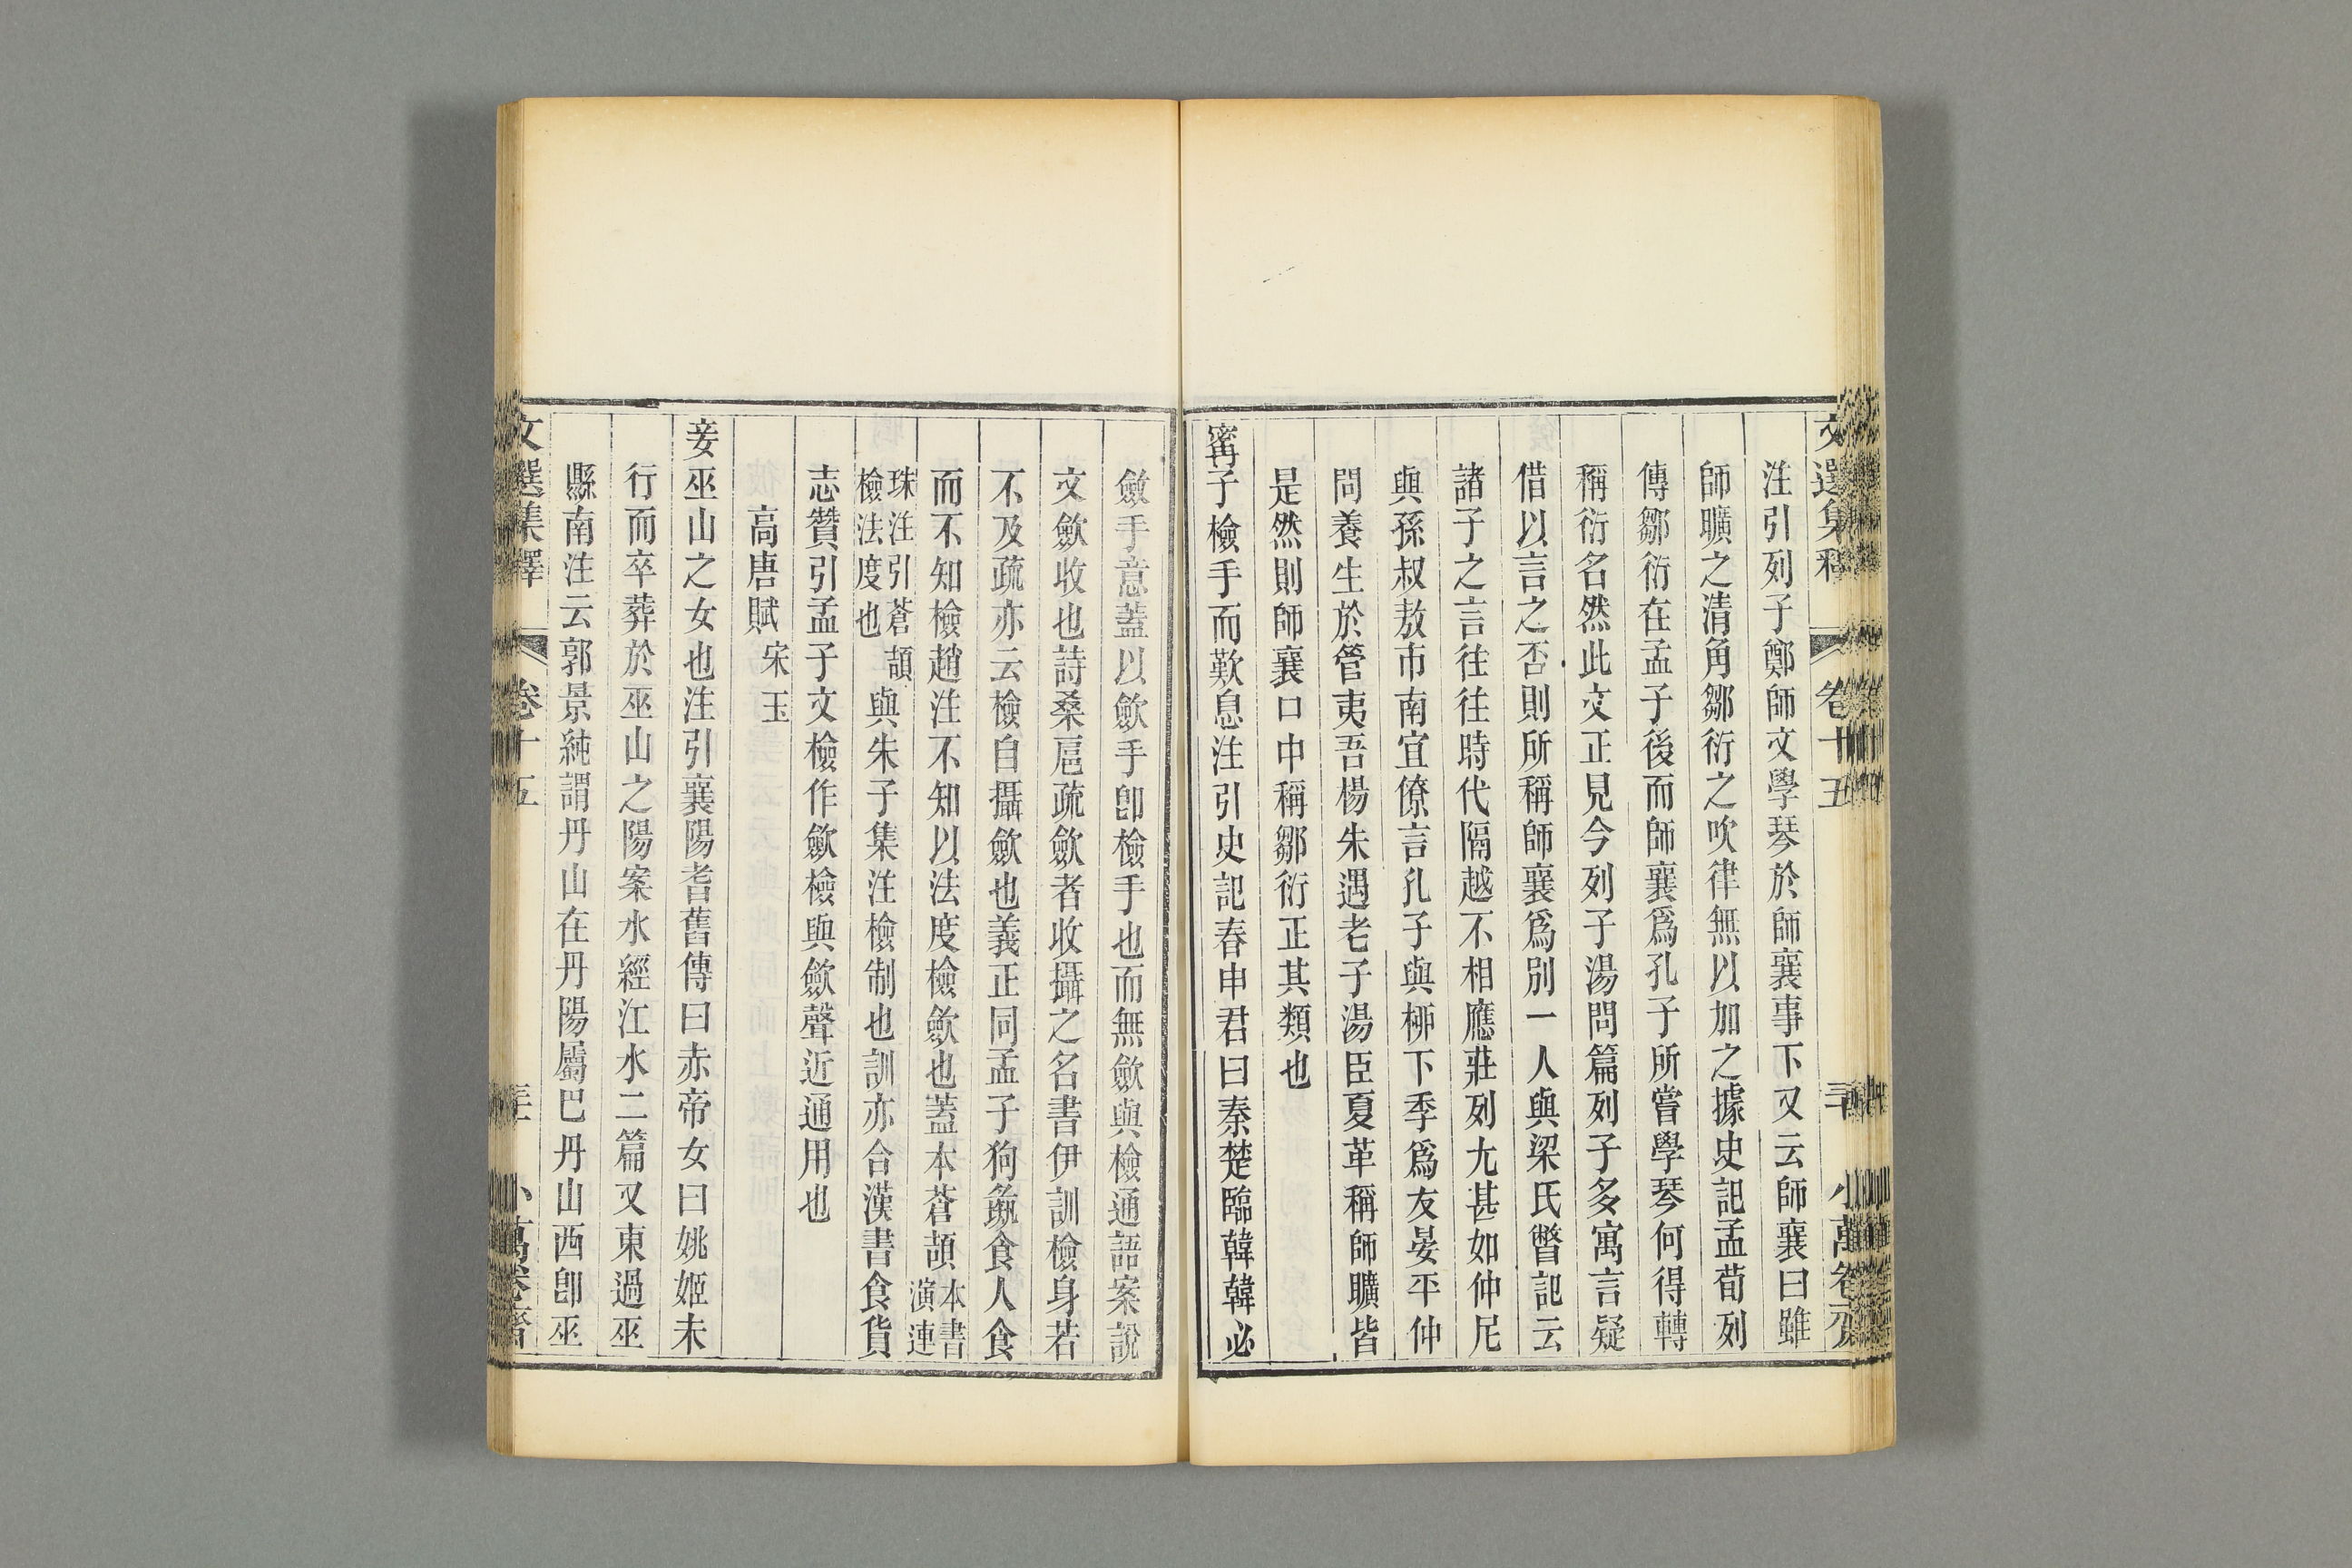 文選集釋 卷十五 小萬卷齋
注引列子鄭師文學琴於師襄事下又云師襄曰雖
師曠之清角鄒衍之吹律無以加之據史記孟荀列
傳鄒衍在孟子後而師襄爲孔子所嘗學琴何得轉
稱衍名然此文正見今列子湯問篇列子多寓言疑
借以言之否則所稱師襄爲別一人與梁氏瞥記云
諸子之言往往時代隔越不相應莊列尤甚如仲尼
與孫叔敖市南宜僚言孔子與柳下季爲友晏平仲
問養生於管夷吾楊朱遇老子湯臣夏革稱師曠皆
是然則師襄口中稱鄒衍正其類也
甯子檢手而歎息注引史記春申君曰秦楚臨韓韓必
斂手意蓋以歛手卽檢手也而無歛與檢通語案說
文歛收也詩桑扈疏歛者收攝之名書伊訓檢身若
不及疏亦云檢自攝歛也義正同孟子狗彘食人食
而不知檢趙注不知以法度檢歛也蓋本蒼頡本書演連
珠注引蒼頡檢法度也與朱子集注檢制也訓亦合漢書食貨
志贊引孟子文檢作歛檢與歛聲近通用也
高唐賦 宋玉
妾巫山之女也注引襄陽耆舊傳曰赤帝女曰姚姬未
行而卒葬於巫山之陽案水經江水二篇又東過巫
縣南注云郭景純謂丹山在丹陽屬巴丹山西卽巫
文選集釋 卷十五 小萬卷齋